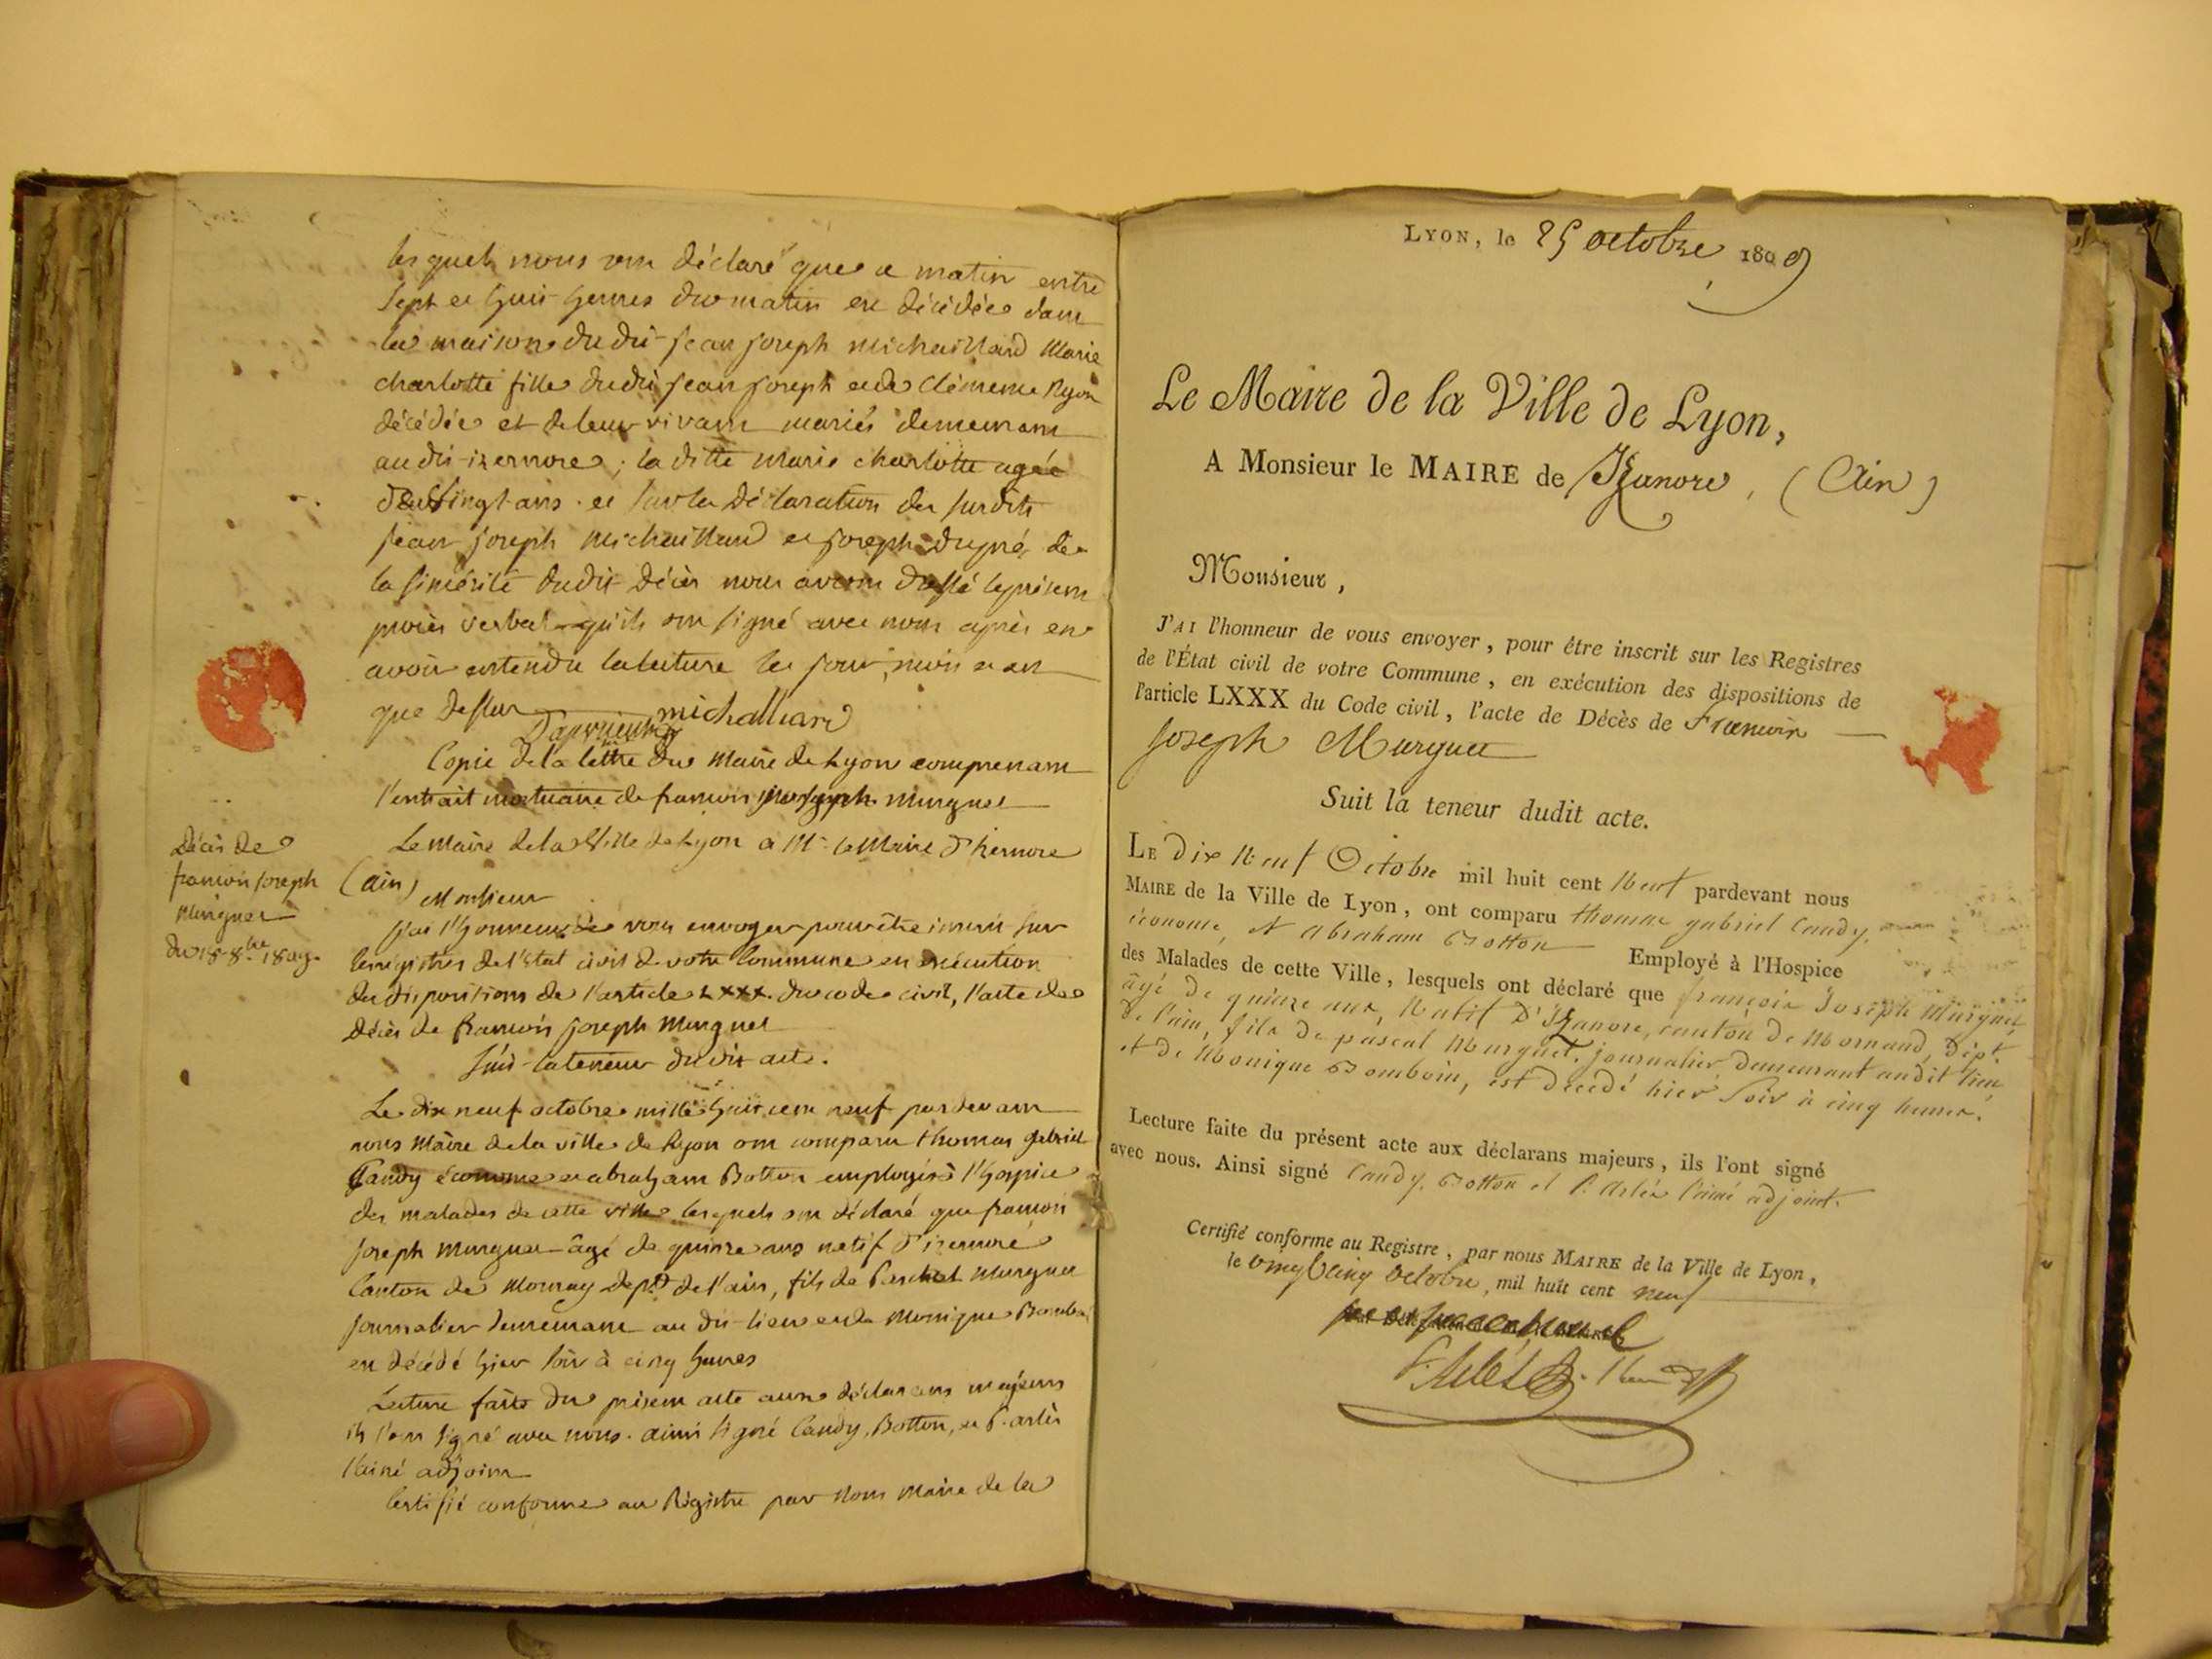 lesquels nous ont déclaré que ce matin entre
sept et huit heures du matin est décédée dans
la maison du dit jean joseph michaillard Marie
charlotte fille du dit jean joseph et de Clémence Ryon
décédée et de leur vivant mariés demeurant
au dit izernore ; la ditte Marie charlotte agée
de vingt ans . et sur la Déclaration des surdits
jean joseph michaillard et joseph de
la sincérité dudit Décès nous avons dressé le présent
procès verbal qu'ils ont signé avec nous après en
avoir entendu la lecture les jour, mois et an
que dessus michalliard
Copie de la lettre du Maire de Lyon comprenant
l'extrait mortuaire de francois joseph murguet
Le Maire de la Ville de Lyon à Mr le Maire d'hernore
(ain)
Monsieur
j'ai l'honneur de vous envoyer pour être inscrit sur
les registres de l'état civil de votre Commune en exécution
des dispositions de l'article LXXX. du code civil, l'acte de
décès de francois joseph Murguet
suit la teneur du dit acte.
Le dix neuf octobre mille huit cent neuf pardevant
nous Maire de la ville de Lyon ont comparu thomas gabriel
Candy économe et abraham Botton employés à l'hospice
des malades de cette ville lesquels ont déclaré que francois
joseph murguet âgé de quinze ans natif d'izernore
Canton de Mornay dept. de l'ain, fils de Paschal Murguet
journalier demeurant au dit lieu et de Monique
est décédé hier soir à cinq heures
Lecture faite du présent acte aux déclarans majeurs
ils l'ont signé avec nous. ainsi signé Candy, Botton, et P. arlès
l'ainé adjoint
Certifié conforme au Régistre par Nous Maire de la
Décès de
francois joseph
Murguet
du 18 8bre 1809.
LYON, le 25 octobre 1809
Le Maire de la Ville de Lyon,
A Monsieur le MAIRE de Izanore, (Ain)
Monsieur,
J'AI l'honneur de vous envoyer, pour être inscrit sur les Registres
de l'État civil de votre Commune, en exécution des dispositions de
l'article LXXX du Code civil, l'acte de Décès de Francois
Joseph Murguet
Suit la teneur dudit acte.
LE dix Neuf Octobre mil huit cent Neuf pardevant nous
MAIRE de la Ville de Lyon, ont comparu thomas gabriel Candy,
économe, et abraham Botton Employé à l'Hospice
des Malades de cette Ville, lesquels ont déclaré que françois Joseph Murguet
âgé de quinze ans, Natif d'Izanore, canton de Mornand, dépt.
de l'ain, fils de pascal Murguet, journalier demeurant audit lieu,
et de Monique Bomboin, est décédé hier soir à cinq heures.
Lecture faite du présent acte aux déclarans majeurs, ils l'ont signé
avec nous. Ainsi signé Candy, Botton et P. Arlès l'ainé adjoint.
Certifié conforme au Registre, par nous MAIRE de la Ville de Lyon,
le vingt cinq octobre, mil huit cent neuf